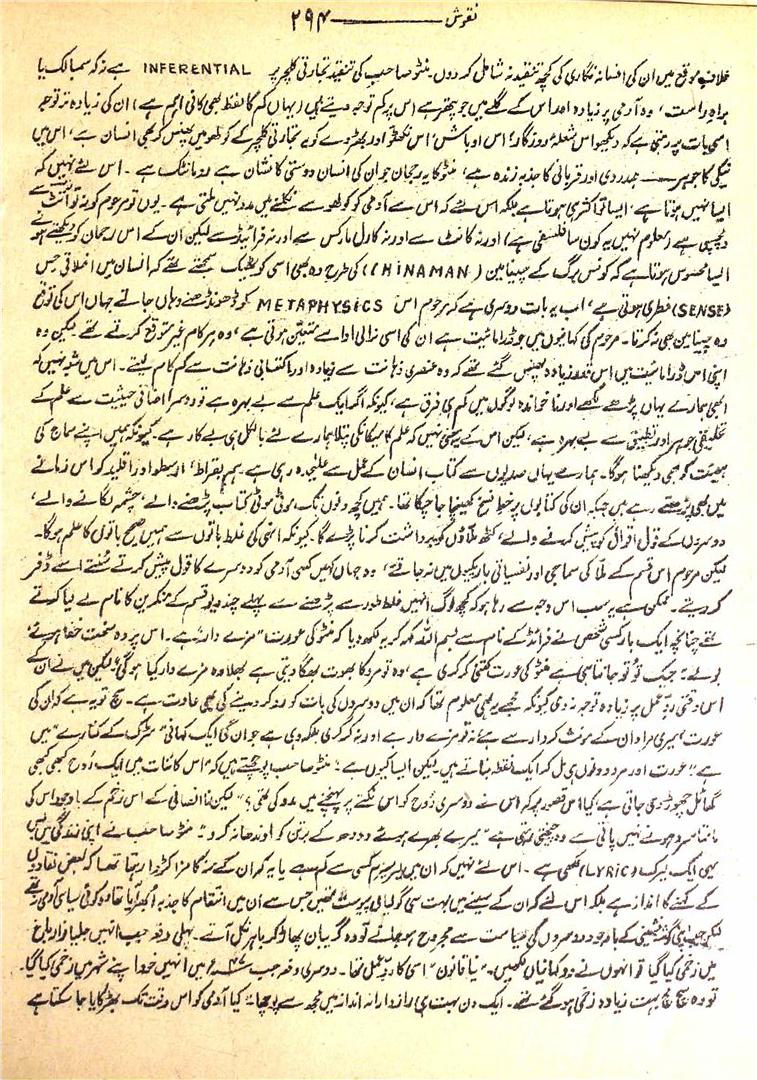 نقوش ــــــــــ ۲۹۴
خلاف موقع میں ان کی افسانہ نگاری کی کچھ تنقید نہ شامل کر دوں۔ منٹو صاحب کی تنقید تجارتی کلچر پر INFERENTIAL ہے نہ کہ سمبالک یا
براہ راست، وہ آدمی پر زیادہ اور اس کے گلے میں جو پتھر ہے اس پر کم توجہ دیتے ہیں (یہاں کم کا لفظ بھی کافی اہم ہے) ان کی زیادہ تر توجہ
اسی بات پر رہتی ہے کہ دیکھو اس شعلۂ روزگار! اس اوباش! اس نکھٹو اور بھڑوے کو یہ تجارتی کلچر کے کولھو میں پھنس کر بھی انسان ہے، اس میں
نیکی کا جوہر ــــ ہمدردی اور قربانی کا جذبہ زندہ ہے، منٹو کا یہ رجحان جو ان کی انسان دوستی کا نشان ہے رومانٹک ہے۔ اس لئے نہیں کہ
ایسا نہیں ہوتا ہے، ایسا تو اکثر ہی ہوتا ہے بلکہ اس لئے کہ اس سے آدمی کو کولھو سے نکلنے میں مدد نہیں ملتی ہے۔ یوں تو مرحوم کو نہ تو آنٹ سے
دلچسپی ہے (معلوم نہیں یہ کون سا فلسفی ہے) اور نہ کانٹ سے اور نہ کارل مارکس سے اور نہ فرائڈ سے لیکن ان کے اس رجحان کو دیکھتے ہوئے
ایسا محسوس ہوتا ہے کہ کونس برگ کے چینامین (CHINAMAN) کی طرح وہ بھی اسی کو ٹھیک سمجھتے تھے کہ انسان میں اخلاقی حس
(SENSE) فطری ہوتی ہے، اب یہ بات دوسری ہے کہ مرحوم اس METAPHYSICS کو ڈھونڈھنے وہاں جاتے جہاں اس کی توقع
وہ چینامین بھی نہ کرتا۔ مرحوم کی کہانیوں میں جو ڈرامائیت ہے ان کی اسی نرالی ادا سے متعین ہوتی ہے، وہ ہر کام غیر متوقع کرتے تھے لیکن وہ
اپنی اس ڈرامائیت میں اس قدر زیادہ پھنس گئے تھے کہ وہ عنصری ذہانت سے زیادہ اور اکتسابی ذہانت سے کم کام لیتے۔ اس میں شبہ نہیں کہ
ابھی ہمارے یہاں پڑھے لکھے اور ناخواندہ لوگوں میں کم ہی فرق ہے، کیونکہ اگر ایک علم سے بے بہرہ ہے تو دوسرا اضافی حیثیت سے علم کے
تخلیقی جوہر اور تطبیق سے بے بہرہ ہے، لیکن اس کے یہ معنی نہیں کہ علم کا میکانکی پتلا ہمارے لئے بالکل ہی بے کار ہے۔ کیونکہ ہمیں اپنے سماج کی
ہیئت کو بھی دیکھنا ہوگا۔ ہمارے یہاں صدیوں سے کتاب انسان کے عمل سے علیحدہ رہی ہے۔ ہم بقراط، ارسطو اور اقلیدس کو اس زمانے
میں بھی پڑھتے رہے ہیں جبکہ ان کی کتابوں پر خط نسخ کھینچا جا چکا تھا۔ ہمیں کچھ دنوں تک، موٹی موٹی کتاب پڑھنے والے، چشمہ لگانے والے،
دوسروں کے قول اقوال کو پیش کرنے والے، کٹھ ملاؤں کو برداشت کرنا پڑے گا۔ کیونکہ انہی کی غلط باتوں سے ہمیں صحیح باتوں کا علم ہوگا۔
لیکن مرحوم اس قسم کے ملا کی سماجی اور نفسیاتی باریکیوں میں نہ جاتے، وہ جہاں کہیں کسی آدمی کو دوسرے کا قول پیش کرتے سنتے اسے ڈفر
کہہ دیتے۔ ممکن ہے یہ سب اس وجہ سے رہا ہو کہ کچھ لوگ انہیں غلط طور سے پڑھنے سے پہلے چند یورپی قسم کے مفکرین کا نام لے لیا کرتے
تھے چنانچہ ایک بار کسی شخص نے فرائڈ کے نام سے بسم اللہ کہہ کر یہ لکھ دیا کہ منٹو کی عورت "مزے دار" ہے۔ اس پر وہ سخت خفا ہوئے،
بولے یہ جھک تو تو جانتا ہی ہے منٹو کی عورت کتنی کرکری ہے، وہ تو مرد کا بھوت بھگا دیتی ہے بھلا وہ مزے دار کیا ہوگی، لیکن میں نے ان کے
اس وقتی ردعمل پر زیادہ توجہ نہ دی کیونکہ مجھے یہ بھی معلوم تھا کہ ان میں دوسروں کی بات کو رد کر دینے کی بھی عادت ہے۔ سچ تو یہ ہے کہ ان کی
عورت، میری مراد ان کے مونث کردار سے ہے نہ تو مزے دار ہے اور نہ کرکری بلکہ وہی ہے جو ان کی ایک کہانی "سڑک کے کنارے" میں
ہے "عورت اور مرد دونوں ہی مل کر ایک نقطہ بناتے ہیں لیکن ایسا کیوں ہے؟ منٹو صاحب پوچھتے ہیں کہ "اس کائنات میں ایک روح کبھی کبھی
گھائل چھوڑ دی جاتی ہے، کیا اس قصور پر کہ اس نے دوسری روح کو اس نکتے پر پہنچنے میں مدد کی تھی؟" لیکن ناانصافی کے اس زخم کے باوجود اس کی
مامتا سرد ہونے نہیں پاتی ہے وہ چیختی رہتی ہے "میرے بھرے ہوئے دودھ کے برتن کو اوندھا نہ کرو"۔ منٹو صاحب نے اپنی زندگی میں بس
یہی ایک لیرک (LYRIC) لکھی ہے۔ اس لئے نہیں کہ ان میں لیریزم کسی سے کم ہے یا یہ کہ ان کے منہ کا مزا کڑوا رہتا تھا کہ بعض نقادوں
کے کہنے کا انداز ہے بلکہ اس لئے کہ ان کے سینے میں بہت سی گولیاں پیوست تھیں جس سے ان میں انتقام کا جذبہ ابھر آیا تھا وہ کوئی سیاسی آدمی نہ تھے
لیکن جب اپنی گوشہ نشینی کے باوجود دوسروں کی سیاست سے مجروح ہو جاتے تو وہ گریبان پھاڑ کر باہر نکل آتے۔ پہلی دفعہ جب انہیں جلیانوالہ باغ
میں زخمی کیا گیا تو انھوں نے دو کہانیاں لکھیں۔ "نیا قانون" اسی کا ردعمل تھا۔ دوسری دفعہ جب ۴۷ء میں انہیں خود اپنے شہر میں زخمی کیا گیا۔
تو وہ سچ مچ بہت زیادہ زخمی ہو گئے تھے۔ ایک دن بہت ہی رازدارانہ انداز میں مجھ سے پوچھا، کیا آدمی کو اس وقت تک بھڑکایا جا سکتا ہے